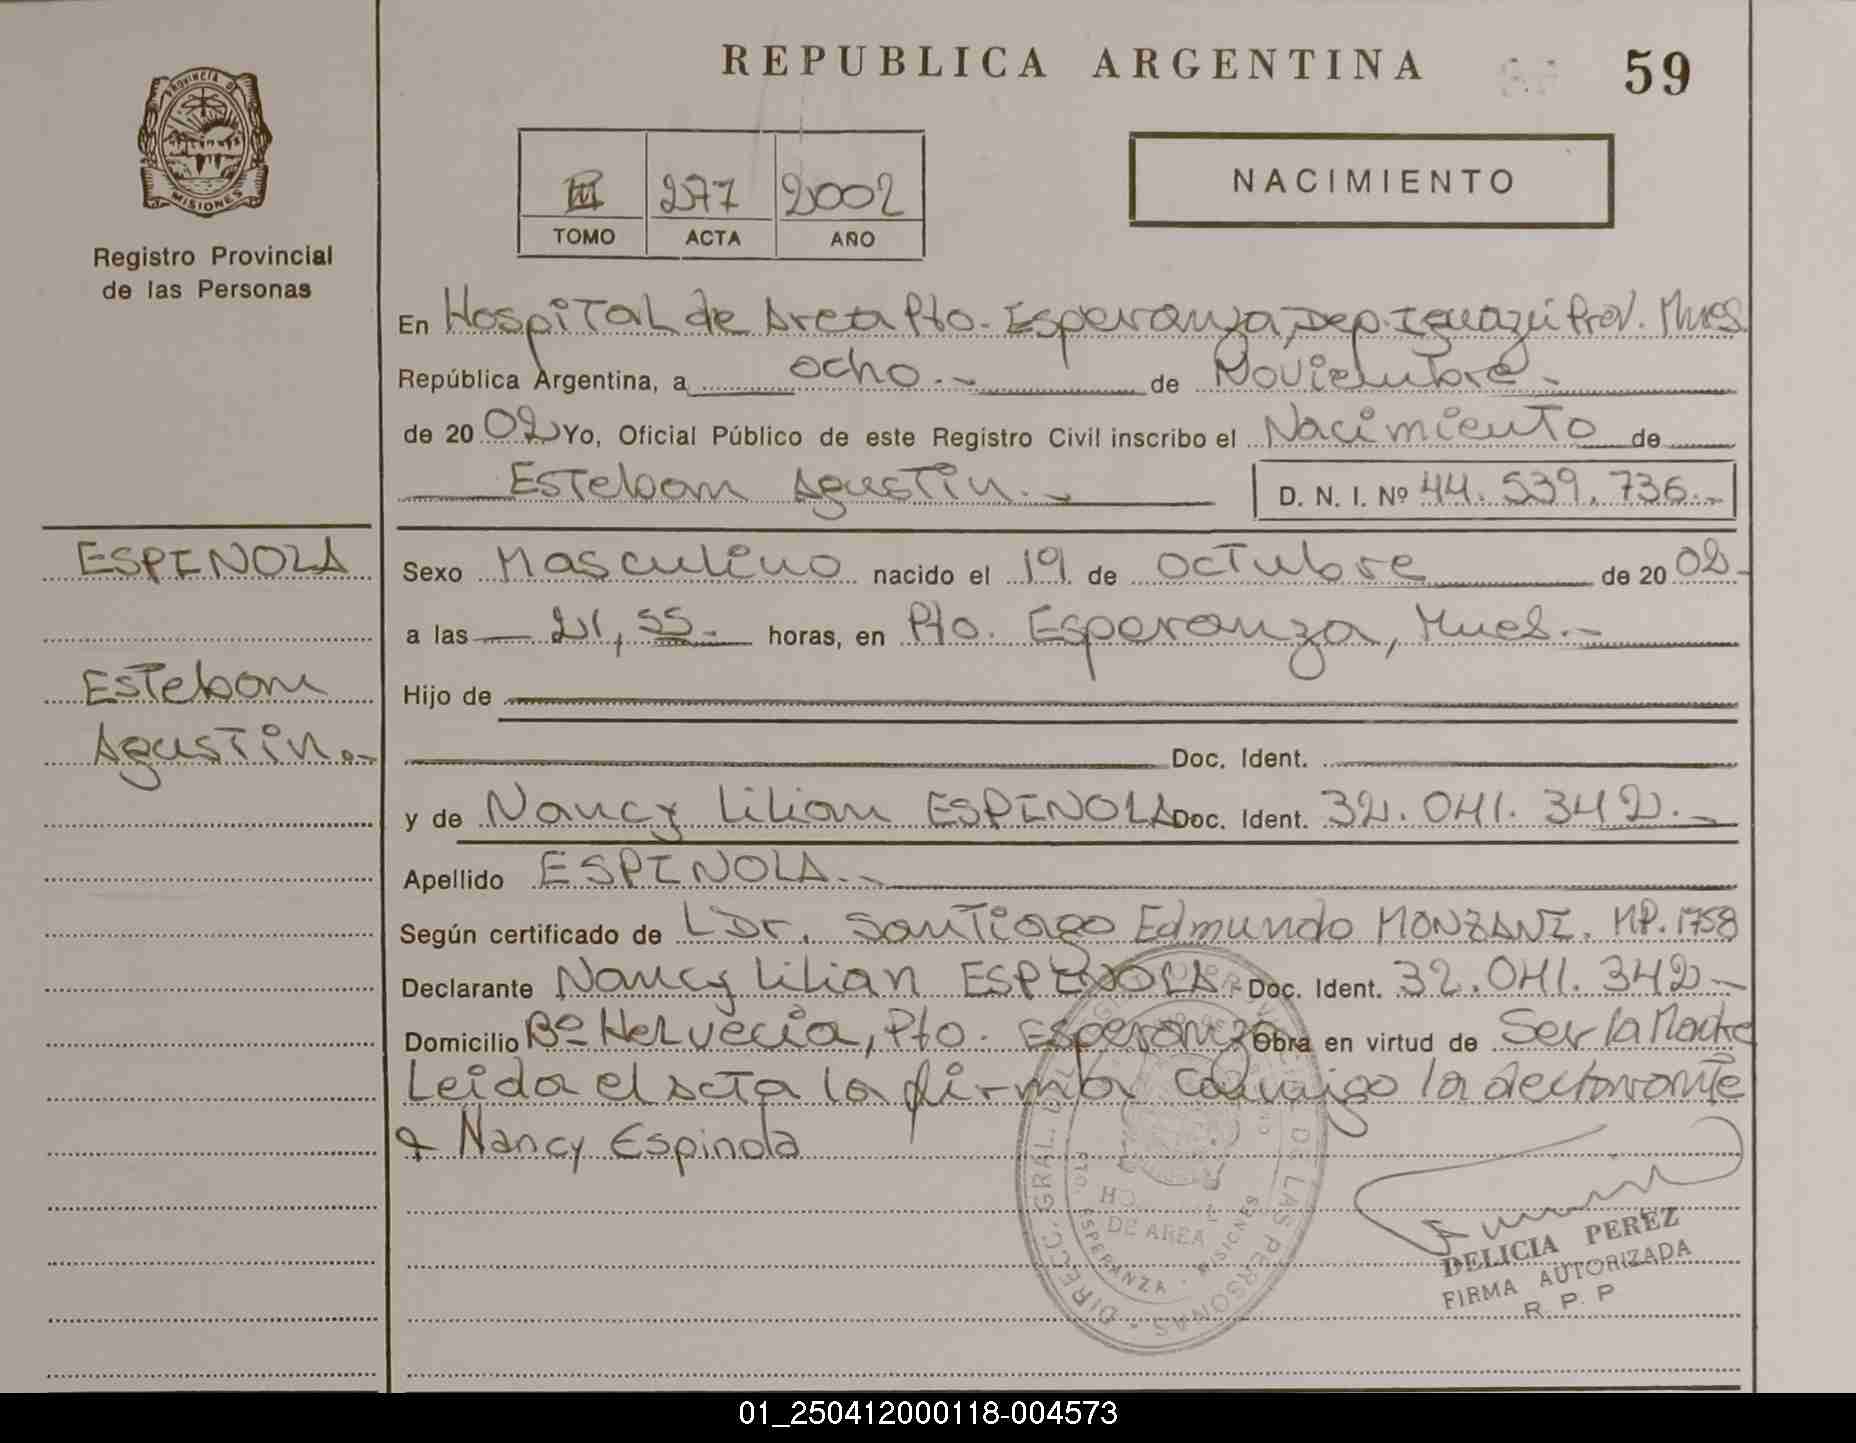 REPUBLICA ARGENTINA
59
PROVINCIA DE
MISIONES
Registro Provincial
de las Personas
III 277 2002
TOMO ACTA AÑO
NACIMIENTO
En Hospital de Area Pto. Esperanza, Dep. Iguazú Prov. Mnes.
República Argentina, a ocho.- de Noviembre.-
de 20 02 Yo, Oficial Público de este Registro Civil inscribo el Nacimiento de
Esteban Agustin.-
D. N. I. Nº 44.539.736.-
ESPINOLA
Esteban
Agustin.-
Sexo Masculino nacido el 19 de octubre de 20 02.-
a las 21,55.- horas, en Pto. Esperanza, Mnes.-
Hijo de
Doc. Ident.
y de Nancy Lilian ESPINOLA Doc. Ident. 32.041.342.-
Apellido ESPINOLA.-
Según certificado de L Dr. Santiago Edmundo MONZANI. MP. 1758
Declarante Nancy Lilian ESPINOLA Doc. Ident. 32.041.342.-
Domicilio Bº Helvecia, Pto. Esperanza Obra en virtud de Ser la Madre
Leida el acta la firma conmigo la declarante
Nancy Espinola
DIRECC. GRAL. DE LAS PERSONAS
DE AREA
PTO. ESPERANZA - MISIONES
DELICIA PEREZ
FIRMA AUTORIZADA
R. P. P
01_250412000118-004573